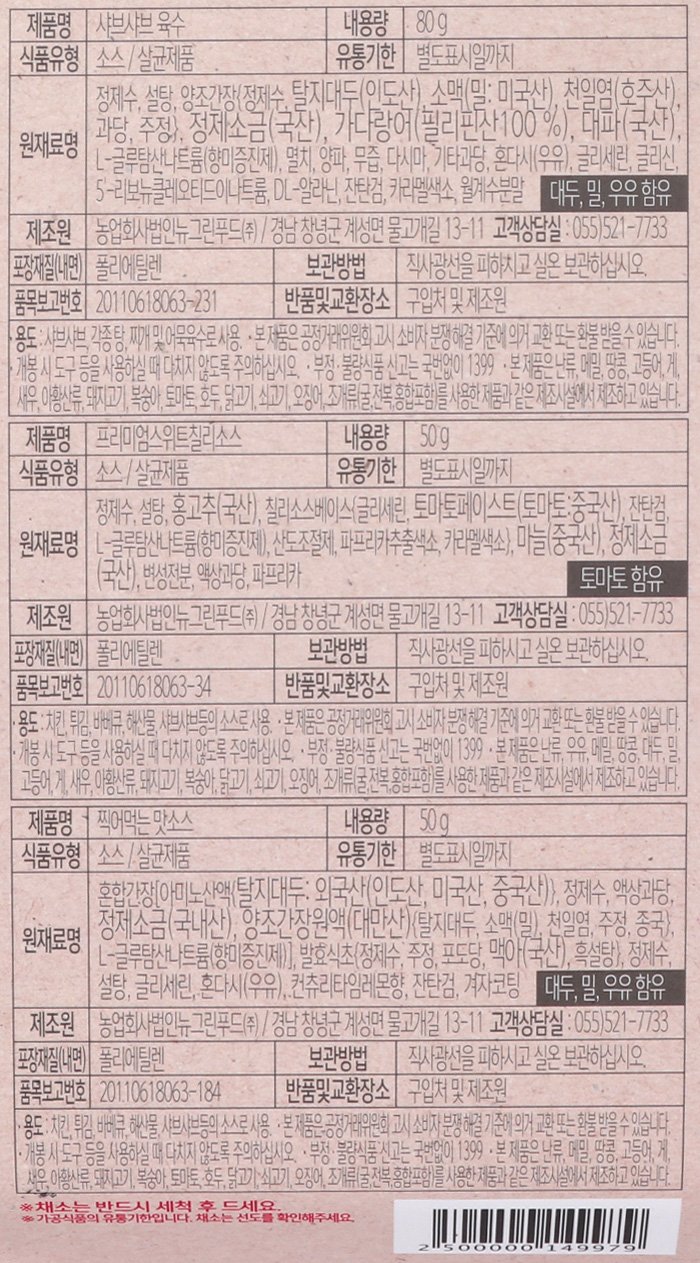 제품명 샤브샤브 육수 내용량 80g
식품유형 소스/살균제품 유통기한 별도표시일까지
원재료명 정제수, 설탕, 양조간장{정제수, 탈지대두(인도산), 소맥(밀: 미국산), 천일염(호주산),
과당, 주정}, 정제소금(국산), 가다랑어(필리핀산100 %), 대파(국산),
L-글루탐산나트륨(향미증진제), 멸치, 양파, 무즙, 다시마, 기타과당, 혼다시(우유), 글리세린, 글리신,
5'-리보뉴클레오티드이나트륨, DL-알라닌, 잔탄검, 카라멜색소, 월계수분말 대두, 밀, 우유 함유
제조원 농업회사법인뉴그린푸드㈜ / 경남 창녕군 계성면 물고개길 13-11 고객상담실 : 055)521-7733
포장재질(내면) 폴리에틸렌 보관방법 직사광선을 피하치고 실온 보관하십시오.
품목보고번호 20110618063-231 반품및교환장소 구입처 및 제조원
· 용도 : 샤브샤브, 각종 탕, 찌개 및 어묵육수로 사용. · 본 제품은 공정거래위원회 고시 소비자 분쟁 해결 기준에 의거 교환 또는 환불 받을 수 있습니다.
· 개봉 시 도구 등을 사용하실 때 다치지 않도록 주의하십시오. · 부정·불량식품 신고는 국번없이 1399 · 본 제품은 난류, 메밀, 땅콩, 고등어, 게,
새우, 아황산류, 돼지고기, 복숭아, 토마토, 호두, 닭고기, 쇠고기, 오징어, 조개류(굴,전복,홍합포함)를 사용한 제품과 같은 제조시설에서 제조하고 있습니다.
제품명 프리미엄스위트칠리소스 내용량 50g
식품유형 소스/살균제품 유통기한 별도표시일까지
원재료명 정제수, 설탕, 홍고추(국산), 칠리소스베이스{글리세린, 토마토페이스트(토마토:중국산), 잔탄검,
L-글루탐산나트륨(향미증진제), 산도조절제, 파프리카추출색소, 카라멜색소}, 마늘(중국산), 정제소금
(국산), 변성전분, 액상과당, 파프리카 토마토 함유
제조원 농업회사법인뉴그린푸드㈜ / 경남 창녕군 계성면 물고개길 13-11 고객상담실 : 055)521-7733
포장재질(내면) 폴리에틸렌 보관방법 직사광선을 피하시고 실온 보관하십시오.
품목보고번호 20110618063-34 반품및교환장소 구입처 및 제조원
· 용도 : 치킨, 튀김, 바베큐, 해산물, 샤브샤브등의 소스로 사용. · 본 제품은 공정거래위원회 고시 소비자 분쟁 해결 기준에 의거 교환 또는 환불 받을 수 있습니다.
· 개봉 시 도구 등을 사용하실 때 다치지 않도록 주의하십시오. · 부정·불량식품 신고는 국번없이 1399 · 본 제품은 난류, 우유, 메밀, 땅콩, 대두, 밀,
고등어, 게, 새우, 아황산류, 돼지고기, 복숭아, 닭고기, 쇠고기, 오징어, 조개류(굴,전복,홍합포함)를 사용한 제품과 같은 제조시설에서 제조하고 있습니다.
제품명 찍어먹는 맛소스 내용량 50g
식품유형 소스/살균제품 유통기한 별도표시일까지
원재료명 혼합간장[아미노산액{탈지대두: 외국산(인도산, 미국산, 중국산)}, 정제수, 액상과당,
정제소금(국내산), 양조간장원액(대만산){탈지대두, 소맥(밀), 천일염, 주정, 종국},
L-글루탐산나트륨(향미증진제)], 발효식초{정제수, 주정, 포도당, 맥아(국산), 흑설탕}, 정제수,
설탕, 글리세린, 혼다시(우유), 컨츄리타임레몬향, 잔탄검, 겨자코팅 대두, 밀, 우유 함유
제조원 농업회사법인뉴그린푸드㈜ / 경남 창녕군 계성면 물고개길 13-11 고객상담실 : 055)521-7733
포장재질(내면) 폴리에틸렌 보관방법 직사광선을 피하시고 실온 보관하십시오.
품목보고번호 20110618063-184 반품및교환장소 구입처 및 제조원
· 용도 : 치킨, 튀김, 바베큐, 해산물, 샤브샤브등의 소스로 사용 · 본 제품은 공정거래위원회 고시 소비자 분쟁 해결 기준에 의거 교환 또는 환불 받을 수 있습니다.
· 개봉 시 도구 등을 사용하실 때 다치지 않도록 주의하십시오. · 부정·불량식품 신고는 국번없이 1399 · 본 제품은 난류, 메밀, 땅콩, 고등어, 게,
새우, 아황산류, 돼지고기, 복숭아, 토마토, 호두, 닭고기, 쇠고기, 오징어, 조개류(굴,전복,홍합포함)를 사용한 제품과 같은 제조시설에서 제조하고 있습니다.
※ 채소는 반드시 세척 후 드세요.
※ 가공식품의 유통기한입니다. 채소는 선도를 확인해주세요.
2 500000 149979